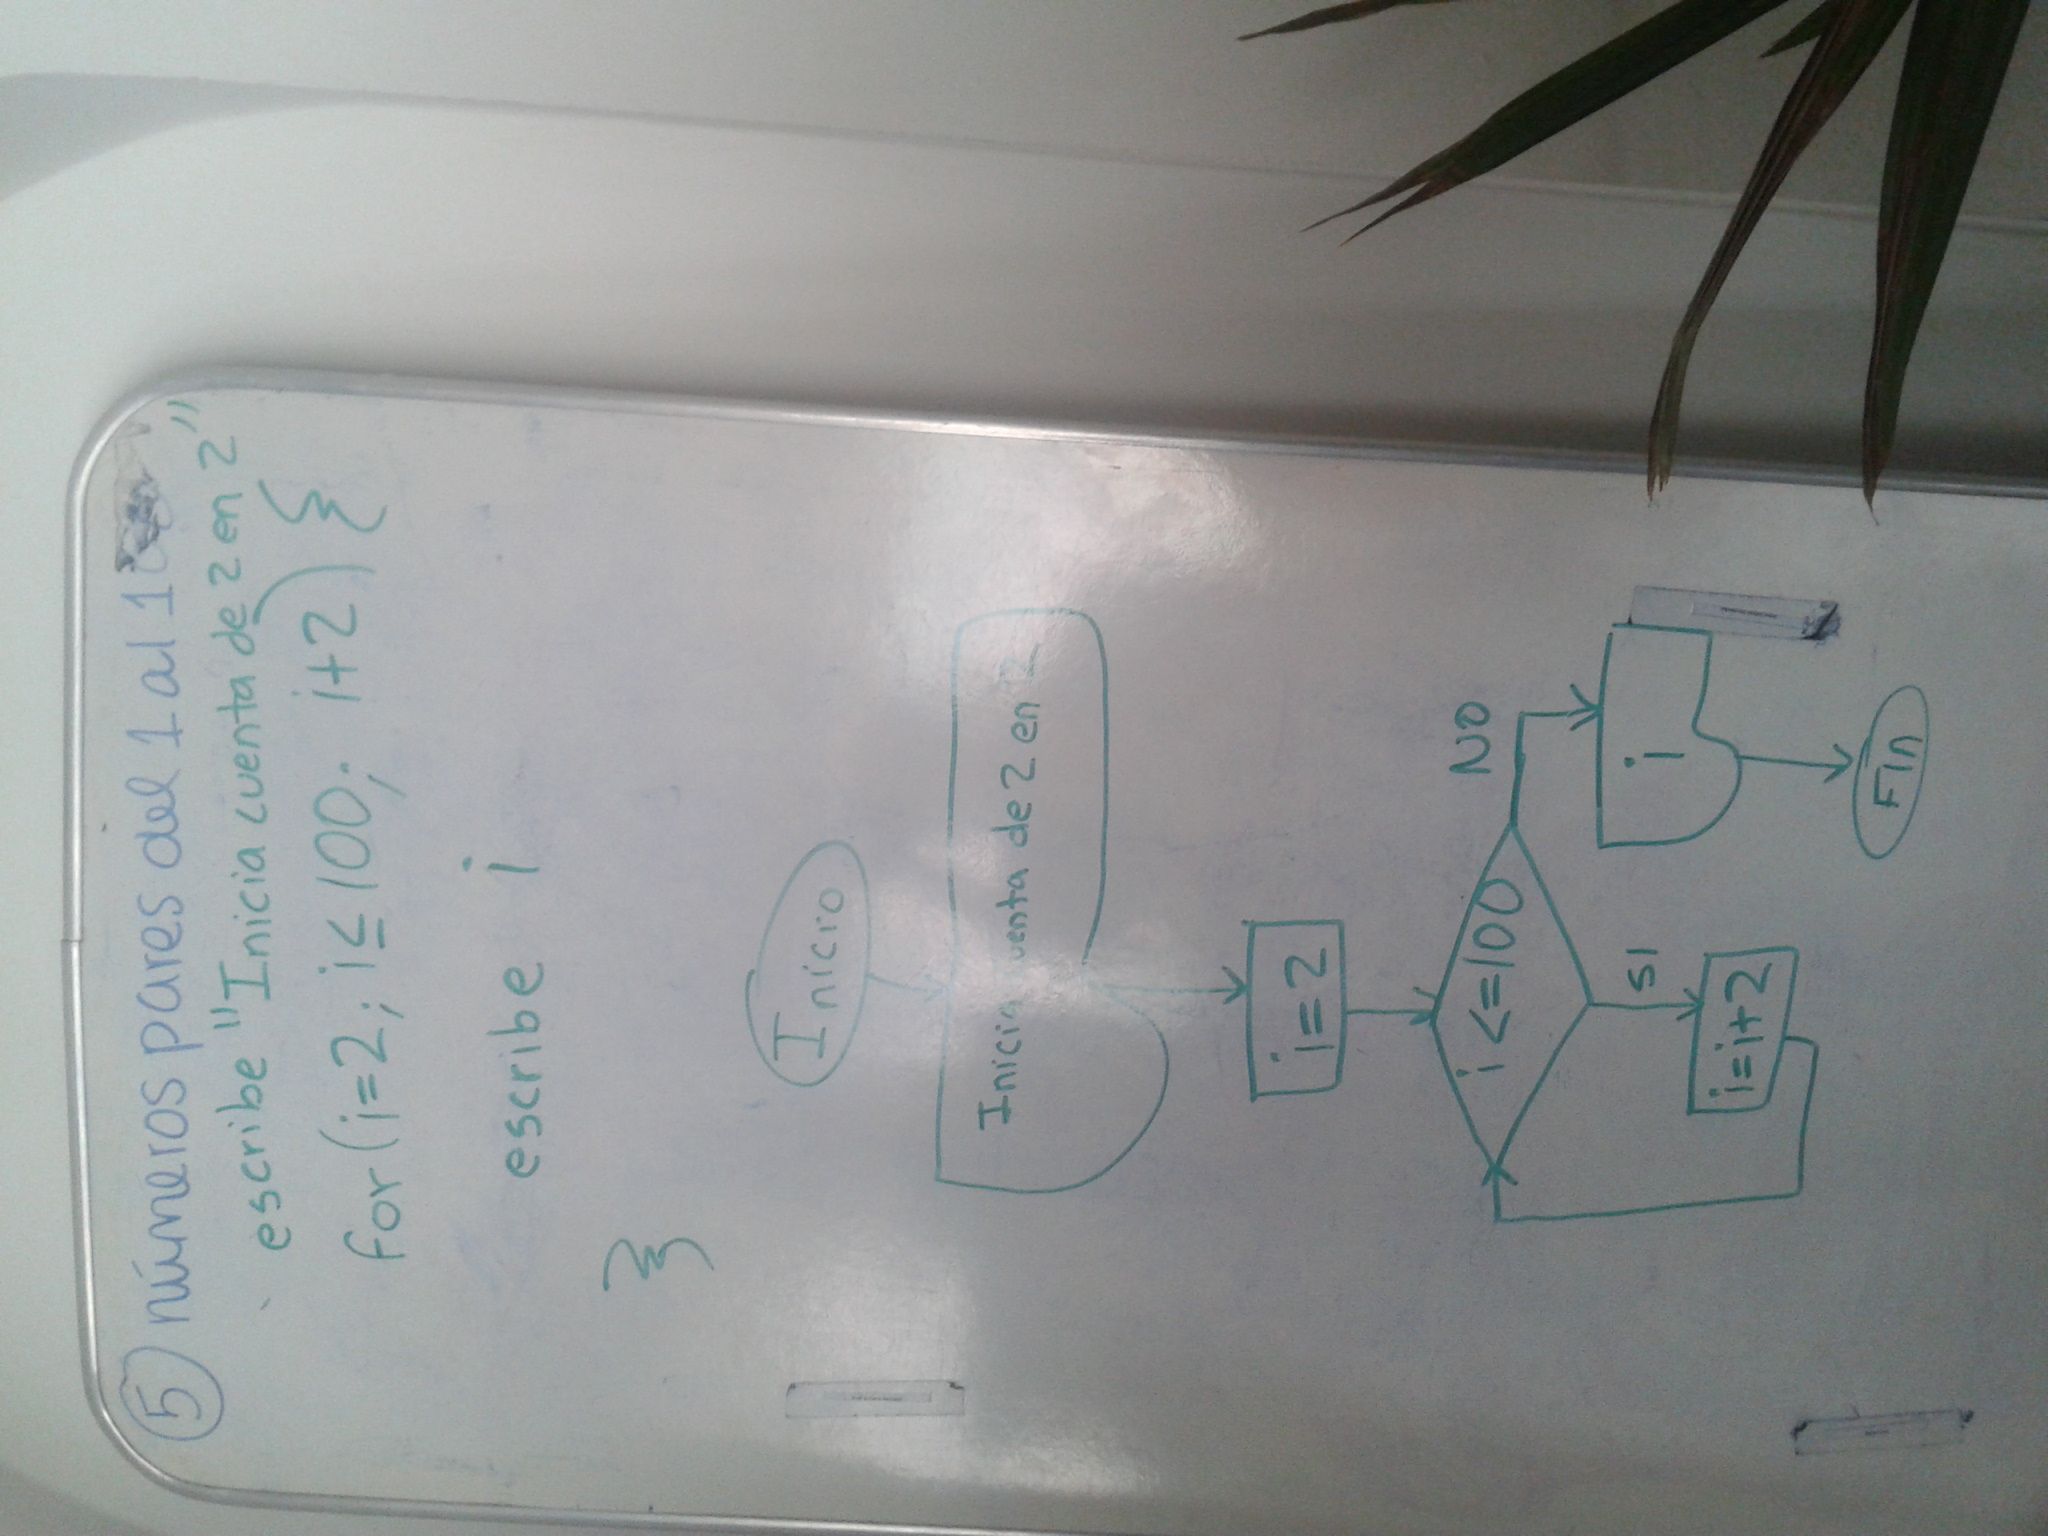 5 números pares del 1 al 100
escribe "Inicia cuenta de 2 en 2"
for (i=2; i≤100; i+2) {
escribe i
}
Inicio
Inicia cuenta de 2 en 2
i=2
i<=100
NO
SI
i
i=i+2
Fin